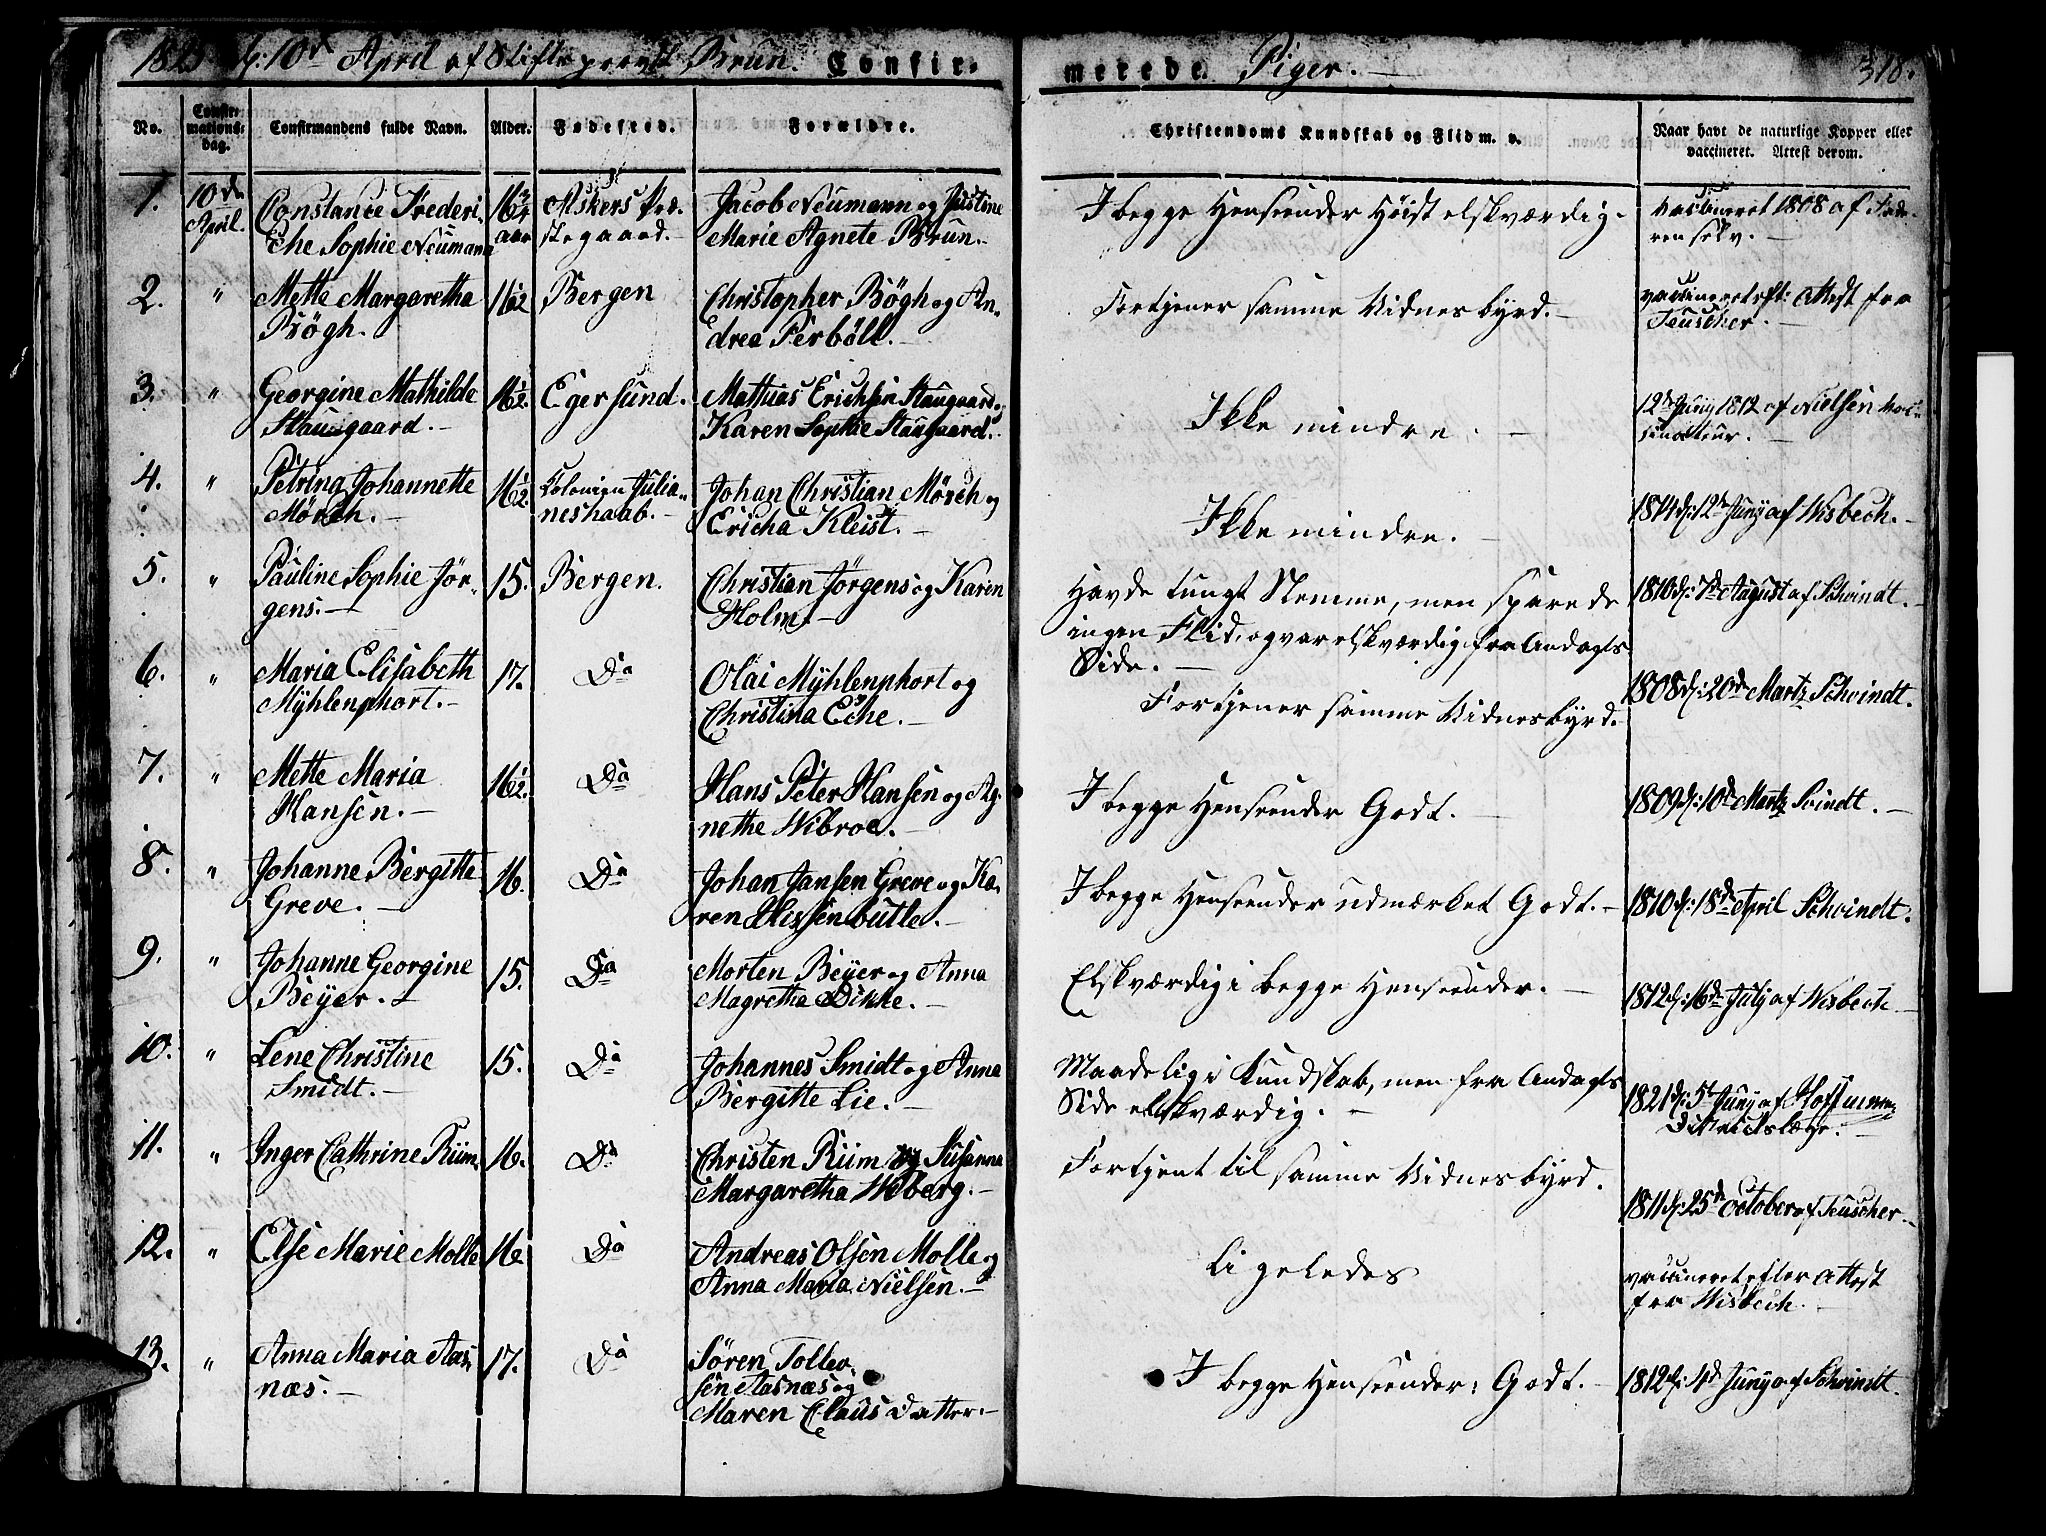 d: 10de April af Stiftsprovst Brun. Confir-
merede Piger. —
318.
No.
Confir-
mations-
dag.
Confirmandens fulde Navn.
Alder.
Fødested.
Forældre.
Christendoms Kundskab og Flid m. v.
Naar havt de naturlige Kopper eller
vaccineret. Attest derom.
1.
10de
April.
Constance Frederi-
che Sophie Neumann
16
aar
Askers Præ-
stegaard.
Jacob Neumann og Justine
Marie Agnete Brun.
I begge Henseender Höist elskværdig.
vaccineret 1808 af Fade-
ren selv. —
2.
"
Mette Margaretha
Bögh.
16½
Bergen
Christopher Bögh og An-
drea Perböll. —
Fortjener samme Vidnesbyrd. —
vaccineret eft: Attest fra
Teuscher. —
3.
"
Georgine Mathilde
Staugaard. —
16½.
Egersund.
Mathias Erichsen Staugaard og
Karen Sophie Staugaard.
Ikke mindre. —
12te Juny 1812 af Nielsen Vac-
sinateur. —
4.
"
Petrina Johannette
Mörch. —
16½
Colonien Julia-
neshaab. —
Johan Christian Mörch og
Ericha Kleist. —
Ikke mindre. —
1814 d: 12te Juny af Wisbech. —
5.
"
Pauline Sophie Jör-
gens. —
15.
Bergen.
Christian Jörgens og Karen
Holm. —
Havde tungt Nemme, men sparede
ingen Flid, og var elskværdig fra Andagts
Side. —
1810 d: 7de August af Schvindt. —
6.
"
Maria Elisabeth
Mÿhlenphort. —
17.
Do
Olai Mÿhlenphort og
Christina Eche. —
Fortjener samme Vidnesbyrd. —
1808 d: 20de Martz Schvindt.
7.
"
Mette Maria
Hansen. —
16½.
Do
Hans Peter Hansen og Ag-
nethe Wibroe. —
I begge Henseender Godt. —
1809 d: 10de Martz Svindt. —
8.
"
Johanne Bergitte
Greve. —
16.
Do
Johan Jansen Greve og Ka-
ren Nissenbutle. —
I begge Henseender udmærket Godt. —
1810 d: 18de April Schvindt.
9.
"
Johanne Georgine
Beÿer. —
15.
Do
Morten Beÿer og Anna
Magretha Dikke. —
Elskværdig i begge Henseender. —
1812 d: 16de July af Wisbech —
10.
"
Lene Christine
Smidt. —
15.
Do
Johannes Smidt og Anna
Bergitte Lie. —
Maadelig i Kundskab, men fra Andagts
Side elskværdig. —
1821 d: 5te Juny af Hoffmann
Districtslæge. —
11.
"
Inger Cathrine Riim.
16.
Do
Christen Riim og Susanna
Margaretha Weberg. —
Fortjent til samme Vidnesbyrd.
1811 d: 25de October af Teuscher. —
12.
"
Else Marie Molle
16
Do
Andreas Olsen Molle og
Anna Maria Nielsen. —
Ligeledes
vaccineret efter Attest
fra Wisbech. —
13.
"
Anna Maria Aas-
næs. —
17.
Do
Sören Tollev-
sen Aasnæs og
Maren Claus Datter. —
I begge Henseender: Godt. —
1812 d: 4de Juny af Schvindt.